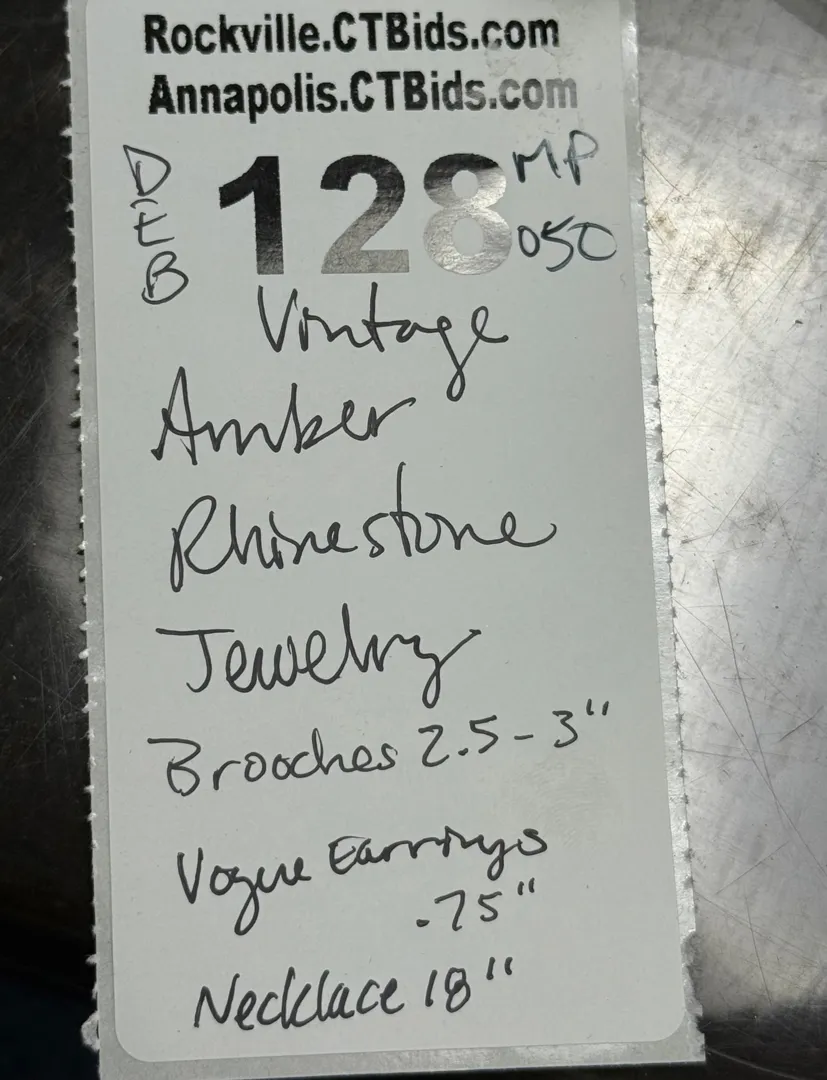 Rockville.CTBids.com
Annapolis.CTBids.com
DEB
128
MP
050
Vintage
Amber
Rhinestone
Jewelry
Brooches 2.5 - 3"
Vogue Earrings
.75"
Necklace 18"